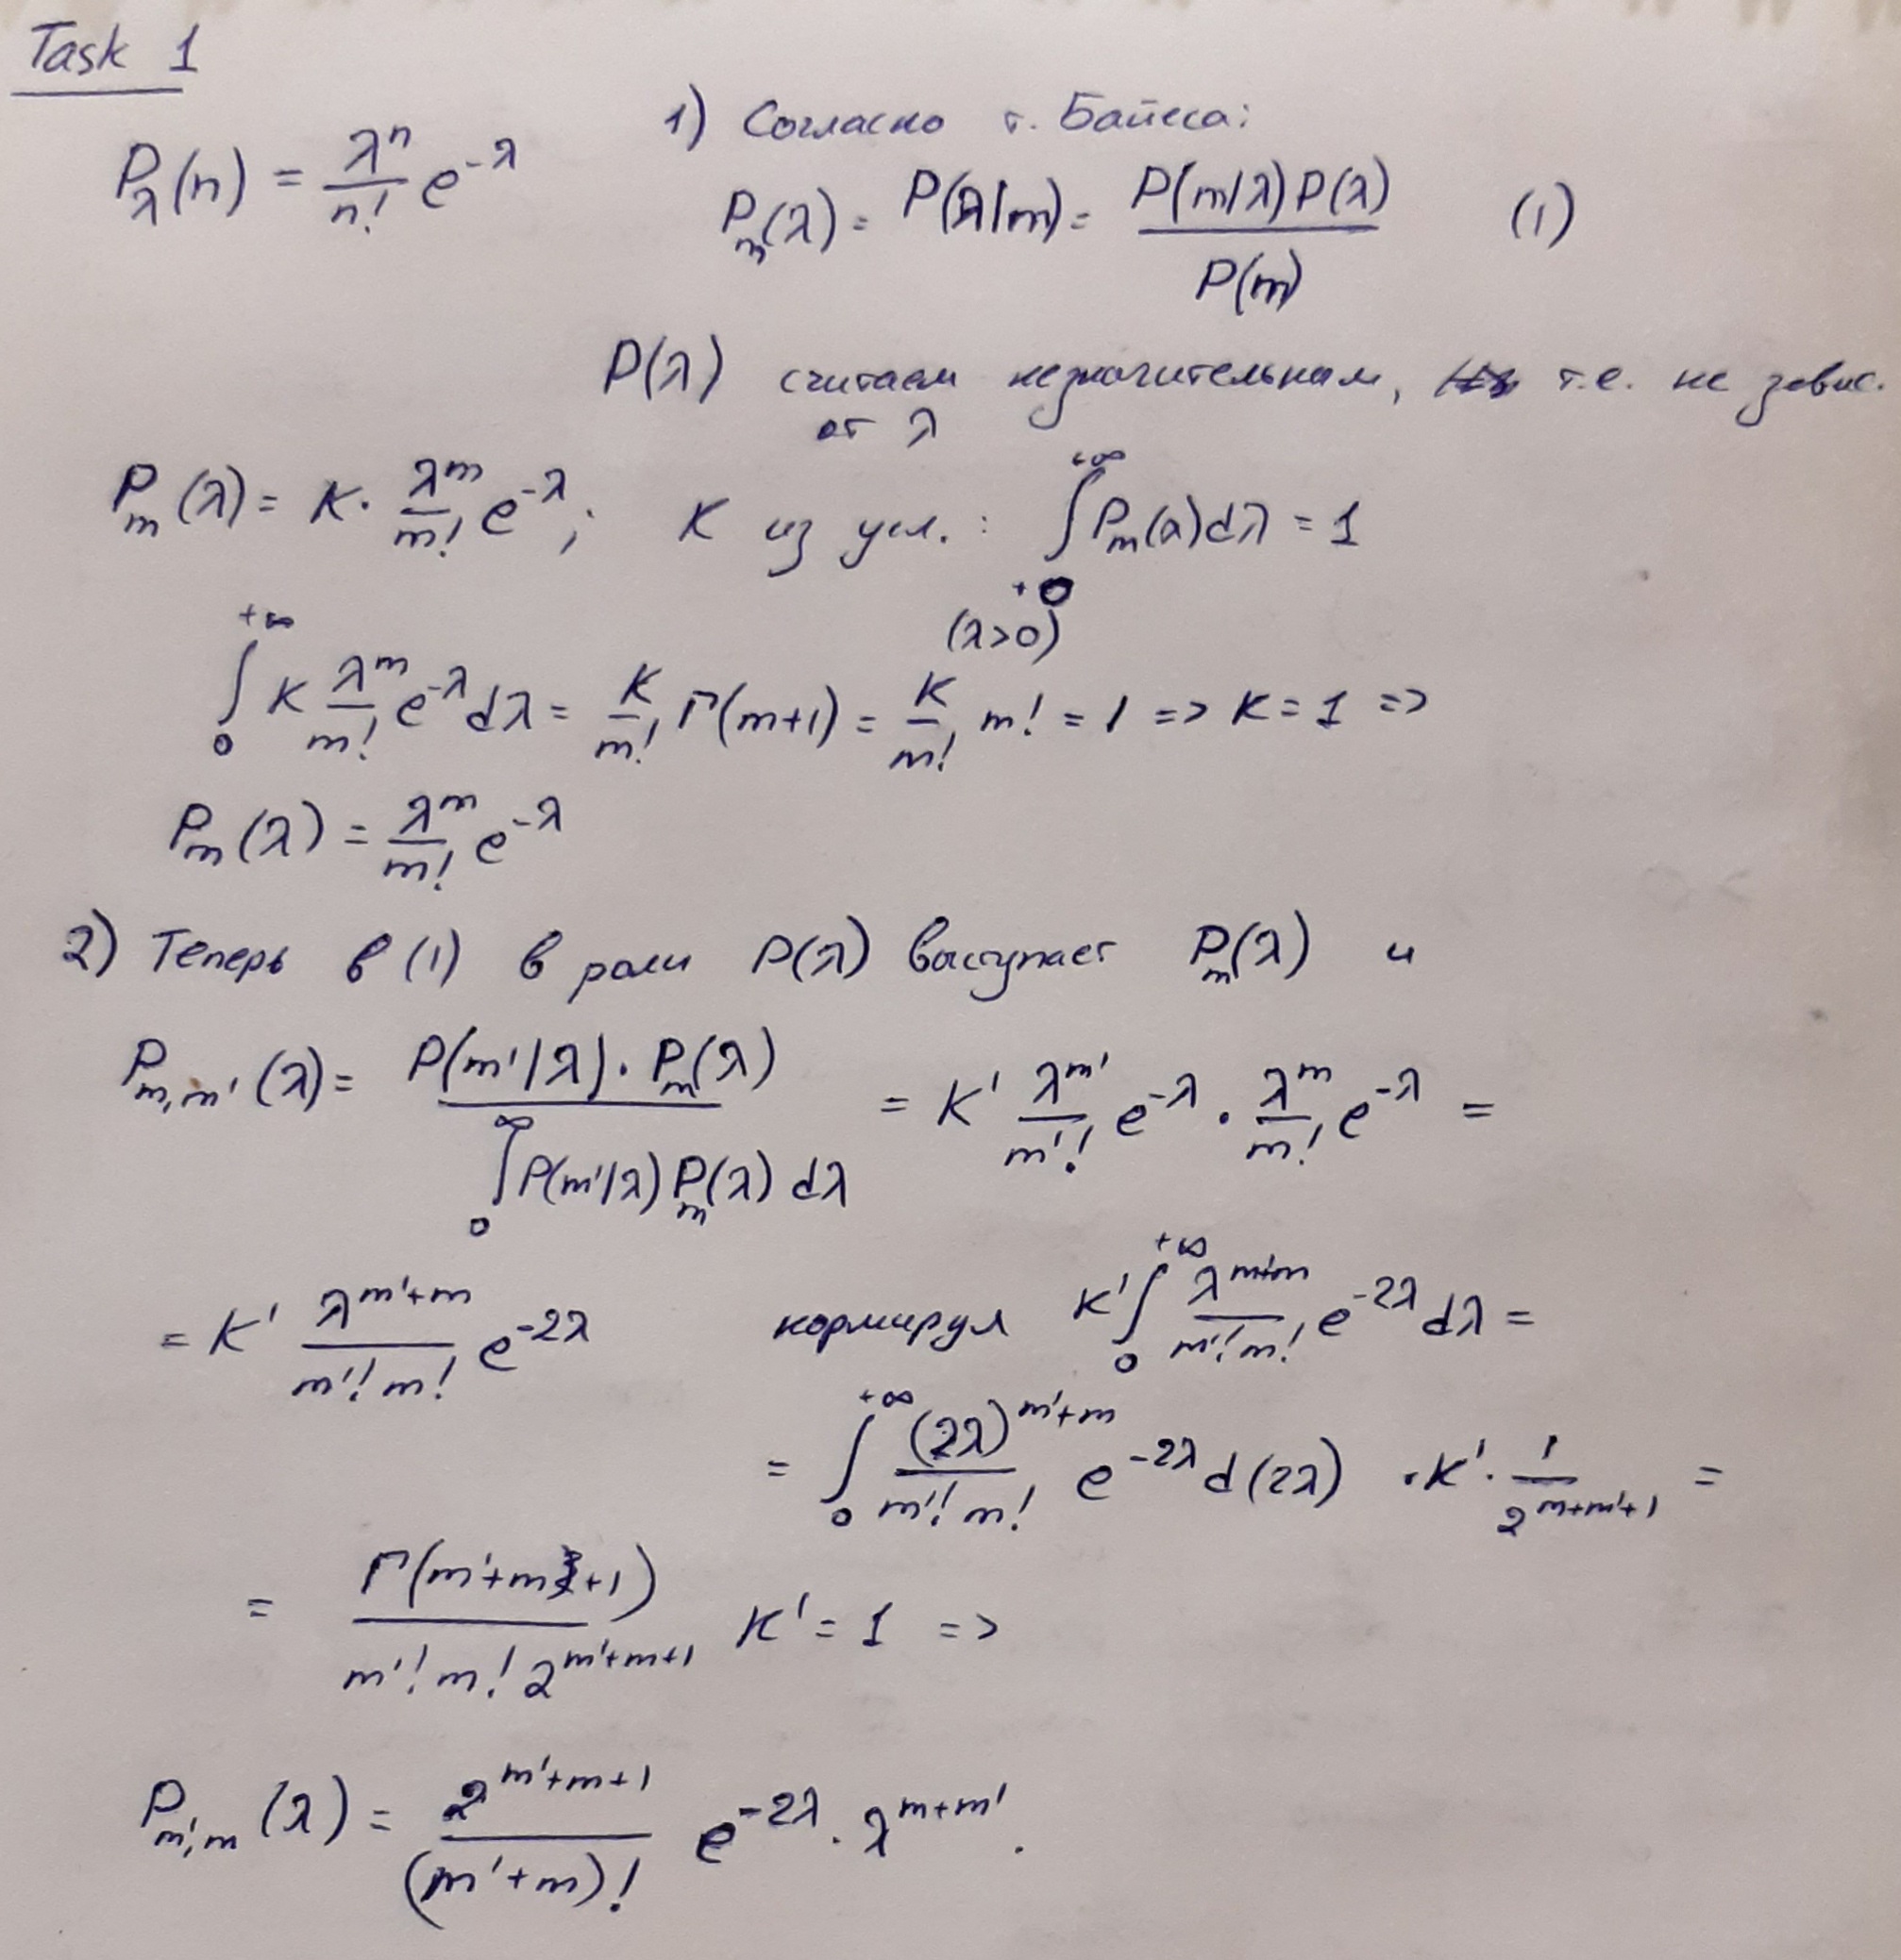 Task 1
1) Согласно т. Байеса:
P_λ(n) = λ^n/n! e^{-λ}
P_m(λ) = P(λ|m) = P(m|λ)P(λ)/P(m) (1)
P(λ) считаем незначительным, т.е. не завис.
от λ
P_m(λ) = K · λ^m/m! e^{-λ}; K из усл.: ∫_{+0}^{+∞} P_m(λ)dλ = 1
(λ>0)
∫_0^{+∞} K λ^m/m! e^{-λ}dλ = K/m! Γ(m+1) = K/m! m! = 1 => K = 1 =>
P_m(λ) = λ^m/m! e^{-λ}
2) Теперь в (1) в роли P(λ) выступает P_m(λ) и
P_{m,m'}(λ) = P(m'|λ)·P_m(λ)/∫_0^∞ P(m'|λ)P_m(λ)dλ = K' λ^{m'}/m'! e^{-λ} · λ^m/m! e^{-λ} =
= K' λ^{m'+m}/m'!m! e^{-2λ} нормируя K'∫_0^{+∞} λ^{m'+m}/m'!m! e^{-2λ}dλ =
= ∫_0^{+∞} (2λ)^{m'+m}/m'!m! e^{-2λ}d(2λ) · K' · 1/2^{m+m'+1} =
= Γ(m'+m+1)/m'!m!2^{m'+m+1} K' = 1 =>
P_{m',m}(λ) = 2^{m'+m+1}/(m'+m)! e^{-2λ} · λ^{m+m'}.